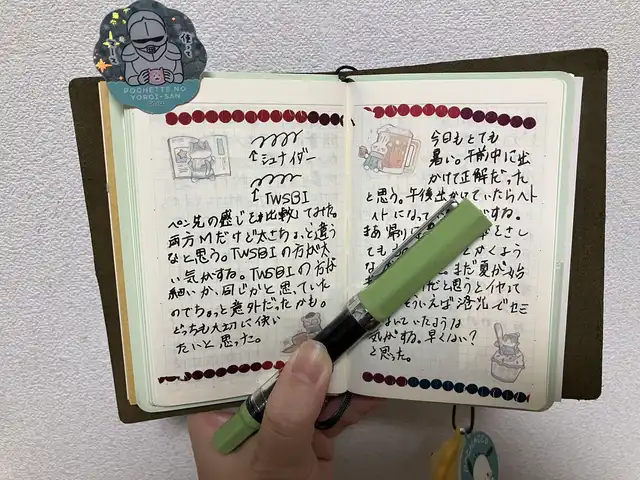 POCHETTE NO
YOROI-SAN
↑シュナイダー
↑TWSBI
ペン先の感じを比較してみた。
両方Mだけど太さちょっと違う
なと思う。TWSBIの方が太
い気がする。TWSBIの方が
細いか、同じかと思っていた
のでちょっと意外だったかも。
どっちも大切に使い
たいと思った。
今日もとても
暑い。午前中に出
かけて正解だった
と思う。午後出かけていたらヘト
ヘトになってい
ですね。
まあ帰り
をさし
ても
とかくよう
な
まだ夏が始
だと思うとイヤって
もういえば
でセミ
ないていたような
気がする。早くない?
と思った。